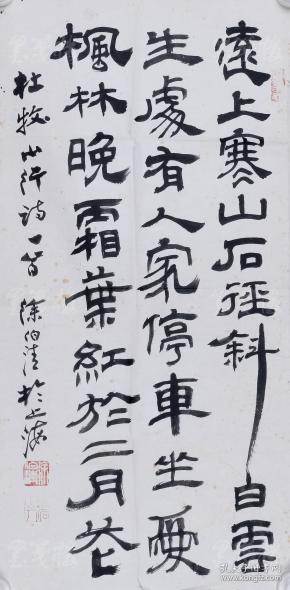 遠上寒山石徑斜白雲
生處有人家停車坐愛
楓林晚霜葉紅於二月花
杜牧山行诗一首 徐伯清於上海